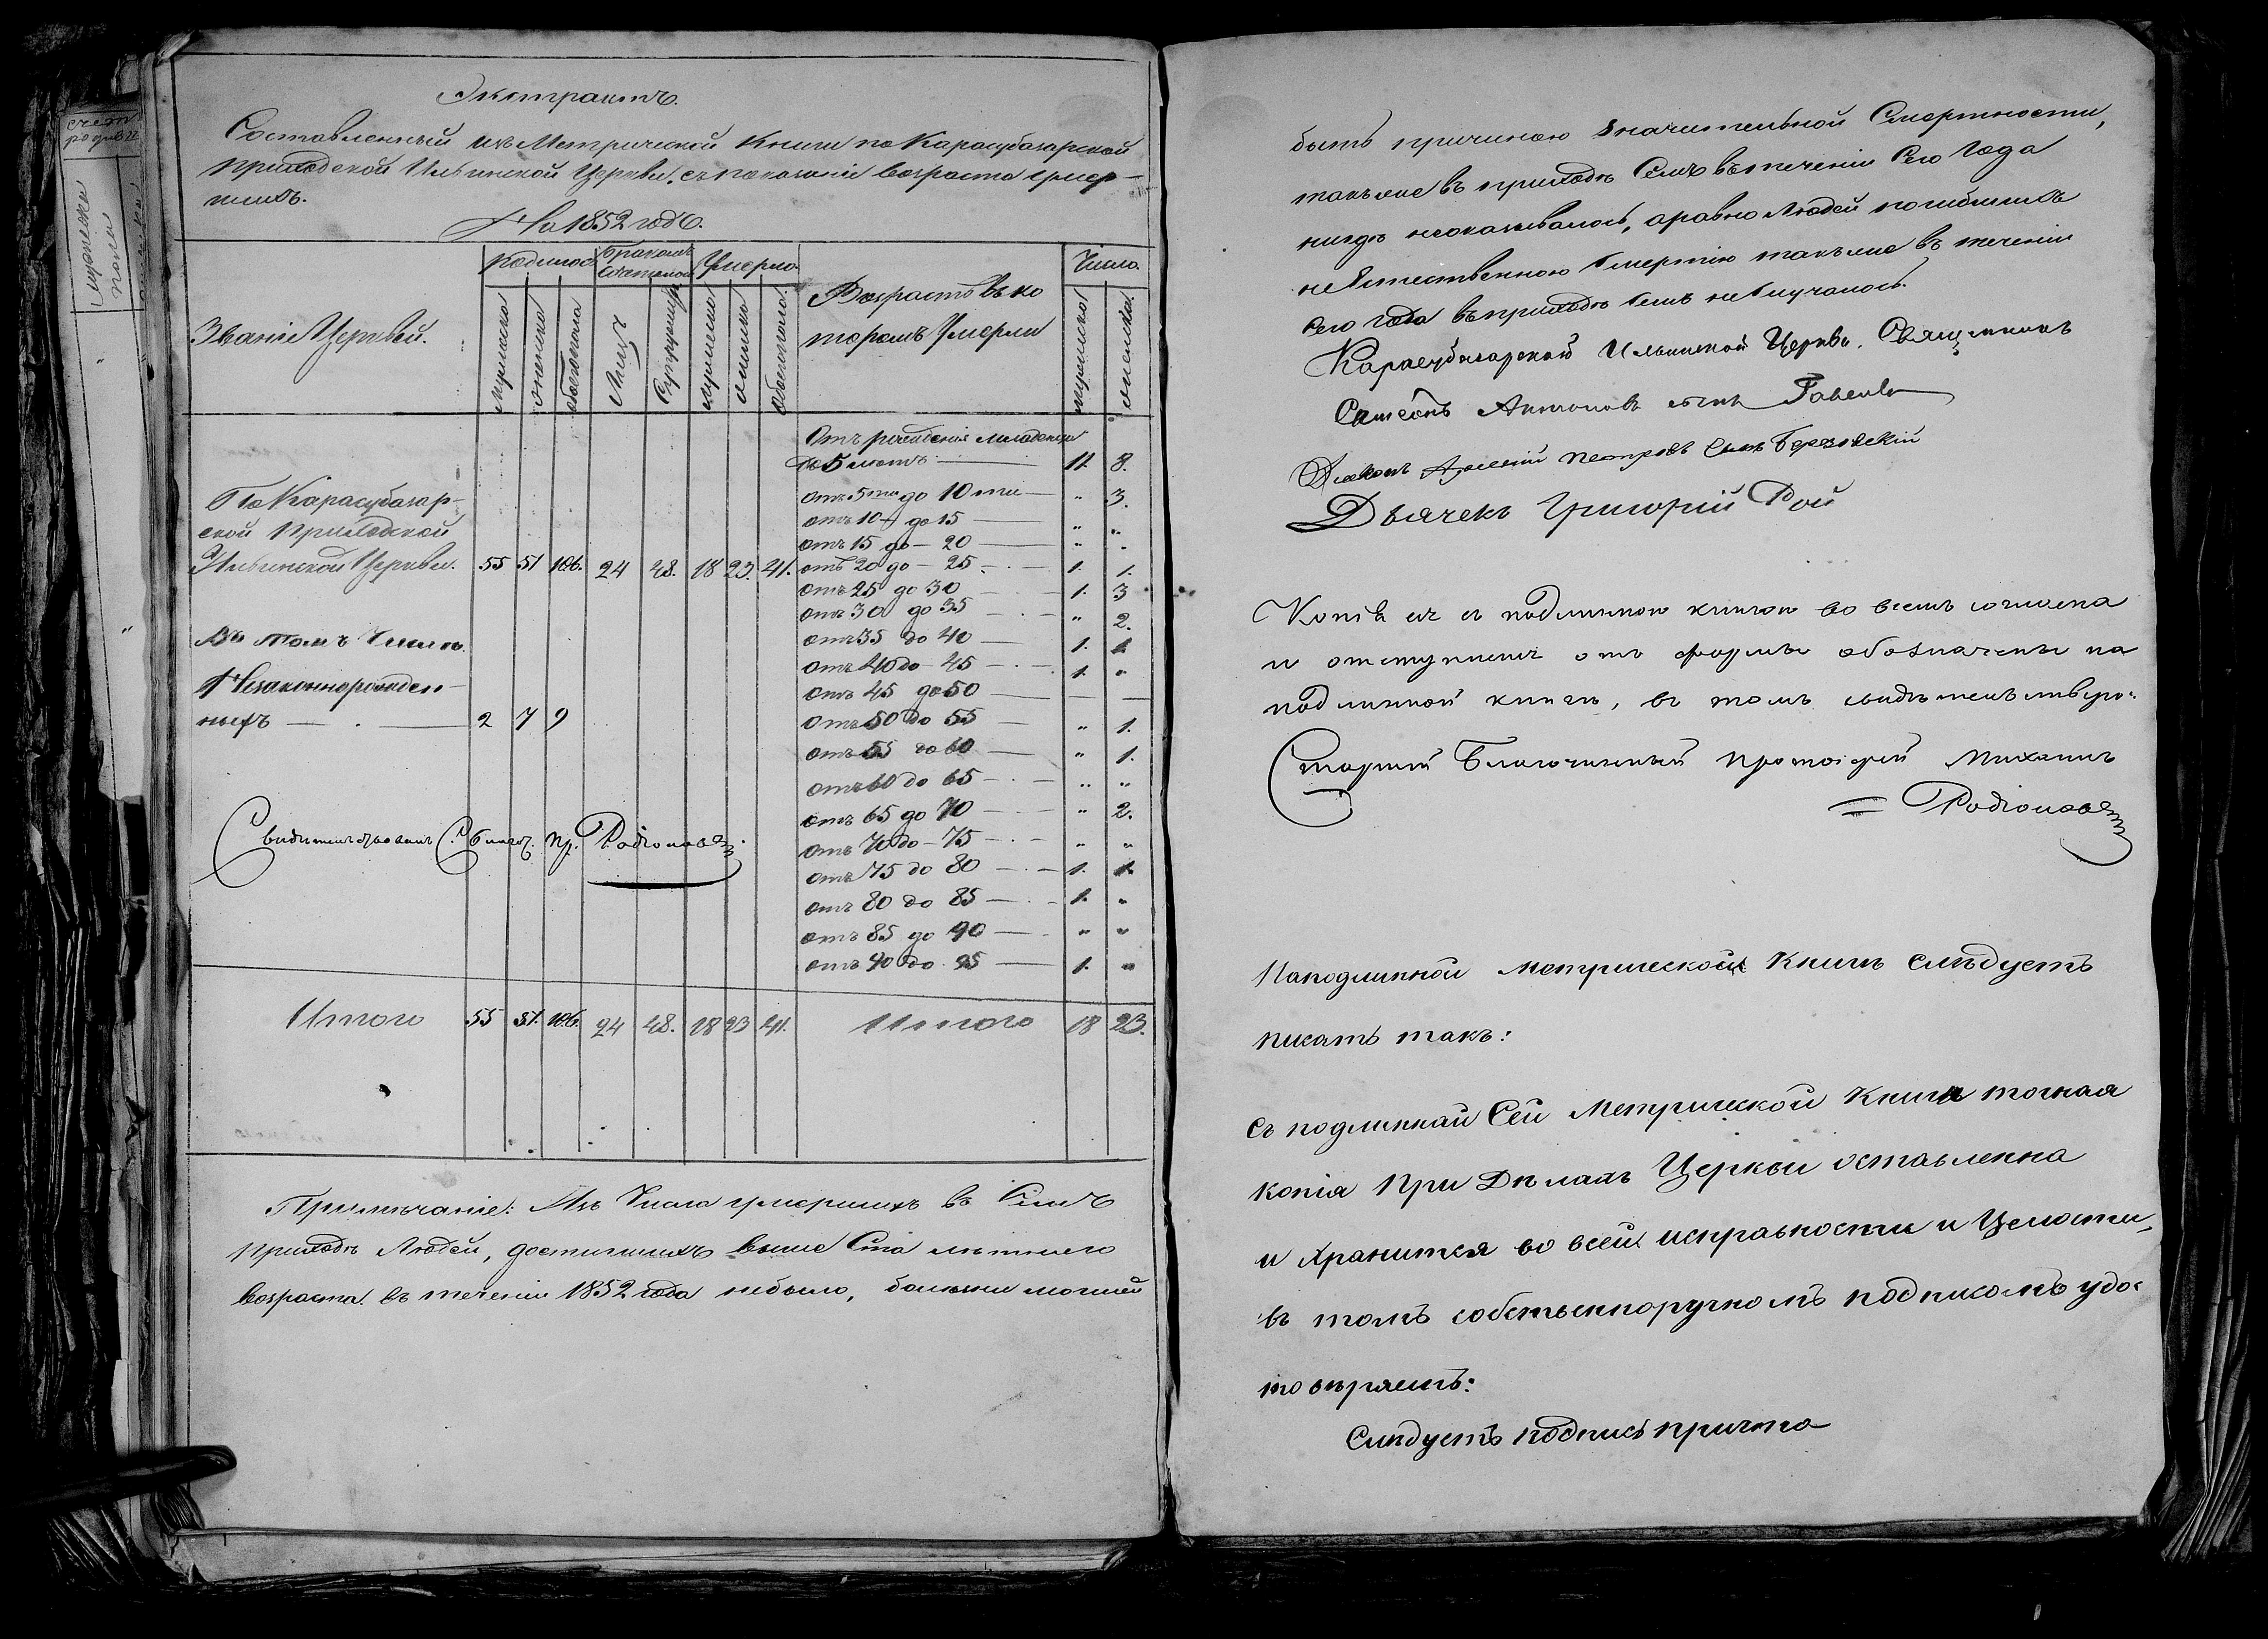 Экстрактъ.
Составленный изъ Метрической Книги по Карасубазарской
приходской Ильинской Церкви, съ показаніе возраста умер-
шихъ.
На 1852 годъ.
Званіе Церквей.
Родилось
Бракомъ
Умерло
мужеска
женска
обоегопола
Лицъ
мужеска
женска
обоегопола
Возрастъ въ ко
торомъ Умерли
Число.
мужеска
женска
Отъ рожденія младенцы
до 5 лѣтъ — 11. 8.
отъ 5ти до 10ти — " 3.
отъ 10 до 15 — " "
отъ 15 до — 20 — " "
отъ 20 до — 25 — 1. 1.
отъ 25 до 30 — 1. 3
отъ 30 до 35 — " 2.
отъ 35 до 40 — 1. 1
отъ 40 до — 45 — 1. "
отъ 45 до 50 — —
отъ 50 до 55 — " 1.
отъ 55 до 60 — " 1.
отъ 60 до 65 — " "
отъ 65 до 70 — " 2.
отъ 70 до — 75 — " "
отъ 75 до 80 — 1. 1.
отъ 80 до 85 — 1. "
отъ 85 до 90 — " "
отъ 90 до 95 — 1. "
По Карасубазар-
ской приходской
Ильинской Церкви. 55 51 106. 24 48. 18 23. 41.
Въ томъ Числѣ
Незаконнорожден-
ныхъ — 2 7 9
Свидѣтельствовалъ С. благоч. Пр. Родіоновъ
Итого 55 51. 106. 24 48. 18 23 41. Итого 18 23.
Примѣчаніе: Изъ Числа умершихъ въ Семъ
приходѣ Людей, достигшихъ выше Ста лѣтняго
возраста въ теченіи 1852 года небыло, болезни могшей
быть причиною значительной Смертности,
такъже въ приходѣ Семъ въ теченіи Сего Года
нигдѣ неоказывалось, а равно Людей погибшихъ
неЕстественною Смертію такъже въ теченіи
Сего года въ приходѣ Семъ не Случалось.
Карасубазарской Ильинской Церкви. Священникъ
Антоновъ сынъ
Діаконъ Арсеній Петровъ Сынъ Березовскій
Дьячекъ Григорій Рой
Копія сія съ подлинною книгою во всемъ согласна
и отступленіе отъ формы обозначены на
подлинной книгѣ, въ томъ свидѣтельствую.
Старшій Благочинный Протоіерей Михаилъ
Родіоновъ
На подлинной метрической Книгѣ слѣдуетъ
писать такъ:
Съ подлинной Сей Метрической Книги точная
копія При Дѣлахъ Церкви оставленна
и хранится во всей исправности и Целости,
въ томъ собственноручномъ подписомъ удо-
товѣряетъ:
Слѣдуетъ подпись причта